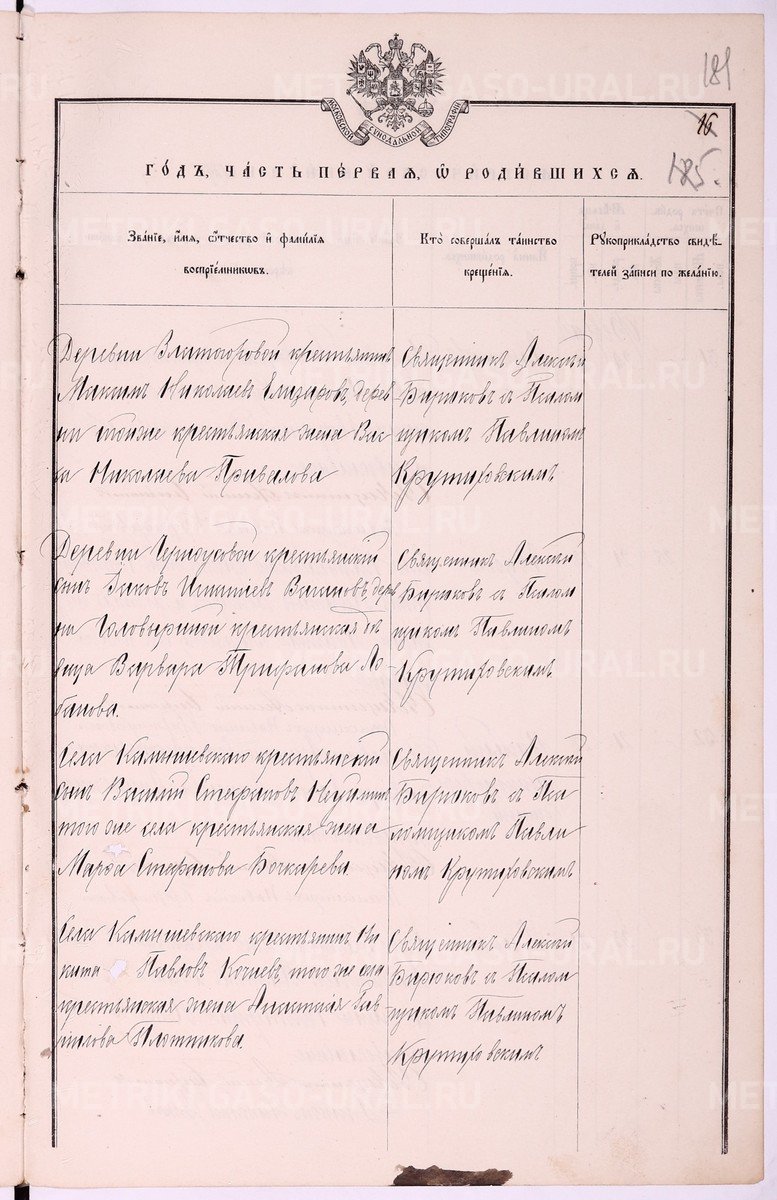 181
16
185.
МОСКОВСКОЙ СѴНОДАЛЬНОЙ ТИПОГРАФІИ
ГО́ДЪ, ЧА́СТЬ ПЕ́РВАЯ, Ѿ РОДИ́ВШИХСѦ.
Зва́нїе, и́мѧ, ѻ҆́тчество и҆ фами́лїѧ
воспрїе́мникѡвъ.
Кто̀ соверша́лъ та́инство
креще́нїѧ.
Рꙋкоприкла́дство свидѣ́-
телей за́писи по жела́нїю.
Деревни Златогоровой крестьянинъ
Максимъ Николаевъ Елизаровъ, дерев
ни тойже крестьянская жена Вас
са Николаева Привалова
Священникъ Алексій
Бирюковъ съ Псалом
щикомъ Павлиномъ
Крутиховскимъ
Деревни Черноусовой крестьянскій
сынъ Іаковъ Игнатіевъ дерев
ни Головыриной крестьянская дѣ
вица Варвара Трифанова Ло-
банова.
Священникъ Алексій
Бирюковъ съ Псалом
щикомъ Павлиномъ
Крутиховскимъ
Села Камышевскаго крестьянскій
сынъ Василій Стефановъ
того же села крестьянская жена
Марѳа Стефанова Бочкарева.
Священникъ Алексій
Бирюковъ съ Пса
ломщикомъ Павли
номъ Крутиховскимъ
Села Камышевскаго крестьянинъ Ни
кита Павловъ Кочневъ, того же села
крестьянская жена Анастасія Гав
рилова Плотникова.
Священникъ Алексій
Бирюковъ съ Псалом
щикомъ Павлиномъ
Крутиховскимъ
METRIKI.GASO-URAL.RU